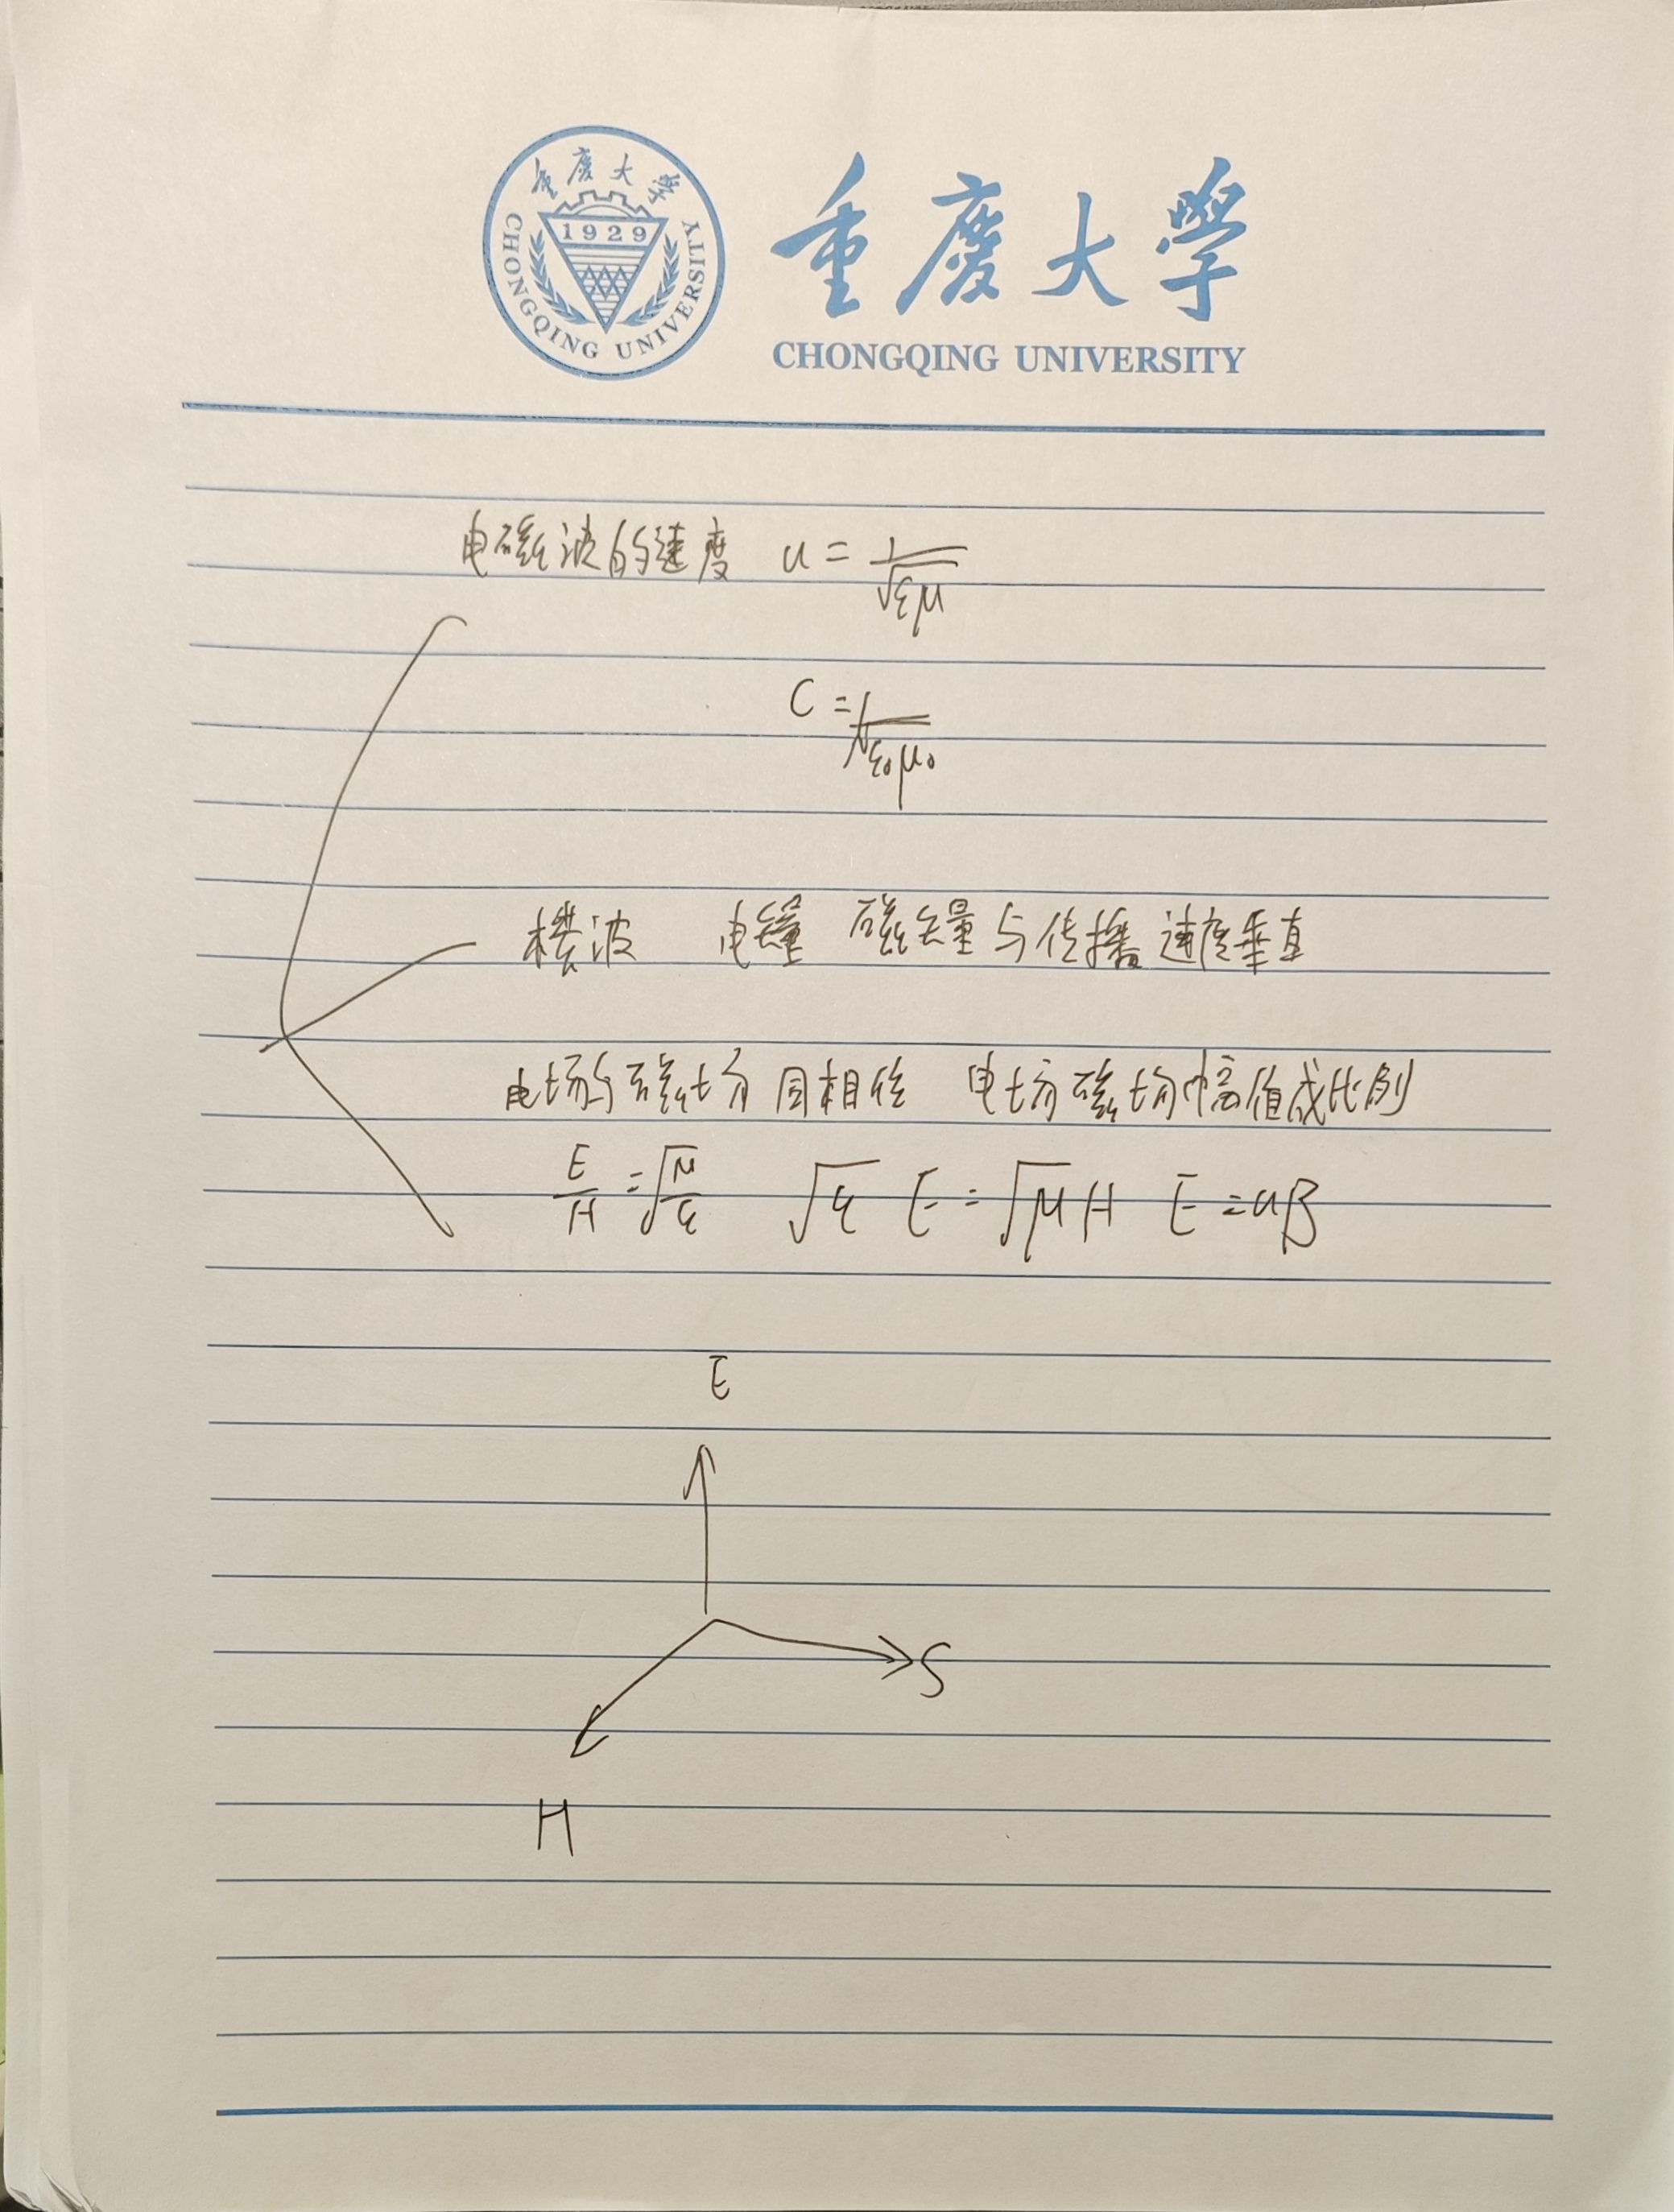 重慶大學
1929
CHONGQING UNIVERSITY
重慶大學
CHONGQING UNIVERSITY
电磁波的速度 u = 1/√εμ
C = 1/√ε₀μ₀
横波 电矢量 磁矢量与传播速度垂直
电场与磁场同相位 电场磁场幅值成比例
E/H = √μ/ε √ε E = √μ H E = uB
E
S
H